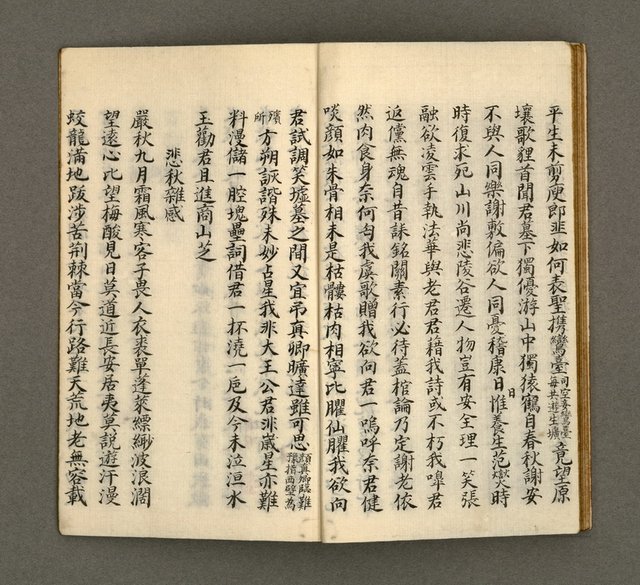 平生未剪廋郎韭如何表聖携鸞臺司空有鸞臺每共遊生壙竟望原
壤歌貍首聞君墓下獨優游山中獨猿鶴自春秋謝安
不與人同樂謝敷偏欲人同憂稽康日惟養生范爕時日
時復求死山川尚悲陵谷遷人物豈有安全理一笑張
融欲凌雲手執法華與老君君藉我詩或不朽我嘷君
返儻無魂自昔誄銘關素行必待蓋棺論乃定謝老依
然肉食身奈何匄我虞歌贈我欲向君一嗚呼奈君健
啖顔如朱骨相未是枯髏枯肉相寧比臞仙臞我欲向
君試調笑墟墓之間又宜弔真卿曠達雖可思顔真卿臨難豫指西壁為
殯所方朔詼諧殊未妙占星我非大王公君非歲星亦難
料漫儲一腔塊壘詞借君一杯澆一巵及今未泣洹水
玉勸君且進商山芝
悲秋雜感
嚴秋九月霜風寒客子畏人衣裘單蓬萊縹緲波浪濶
望遠心比望梅酸見日莫道近長安居夷莫説遊汗漫
蛟龍滿地跋涉苦荆棘當今行路難天荒地老無容載